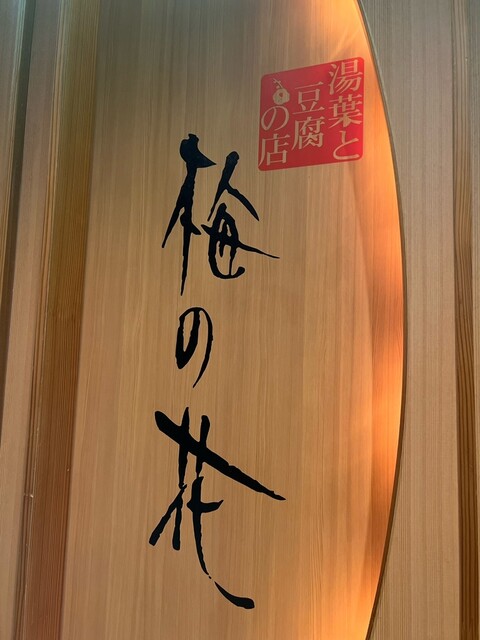 湯葉と
豆腐
の店
梅の花